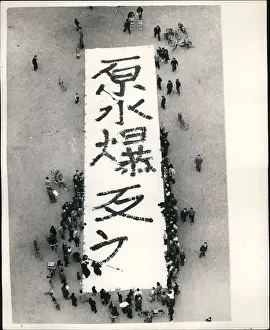 原水爆反